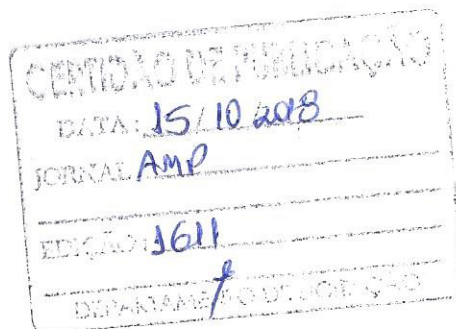 CERTIDÃO DE PUBLICAÇÃO
DATA: 15/10 2018
JORNAL AMP
EDIÇÃO: 1611
DEPARTAMENTO DE